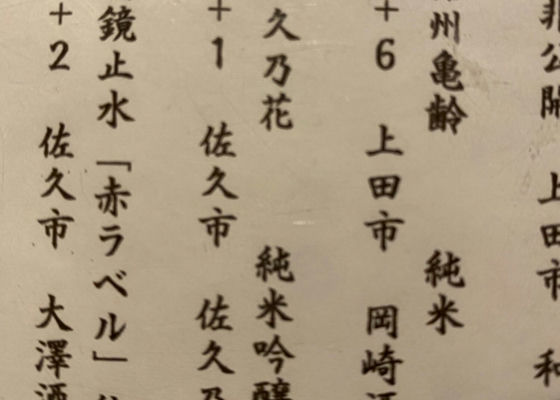 非公開
上田市 和
州亀齢 純米
+6 上田市 岡崎酒
久乃花 純米吟醸
+1 佐久市 佐久乃
鏡止水「赤ラベル」
+2 佐久市 大澤酒